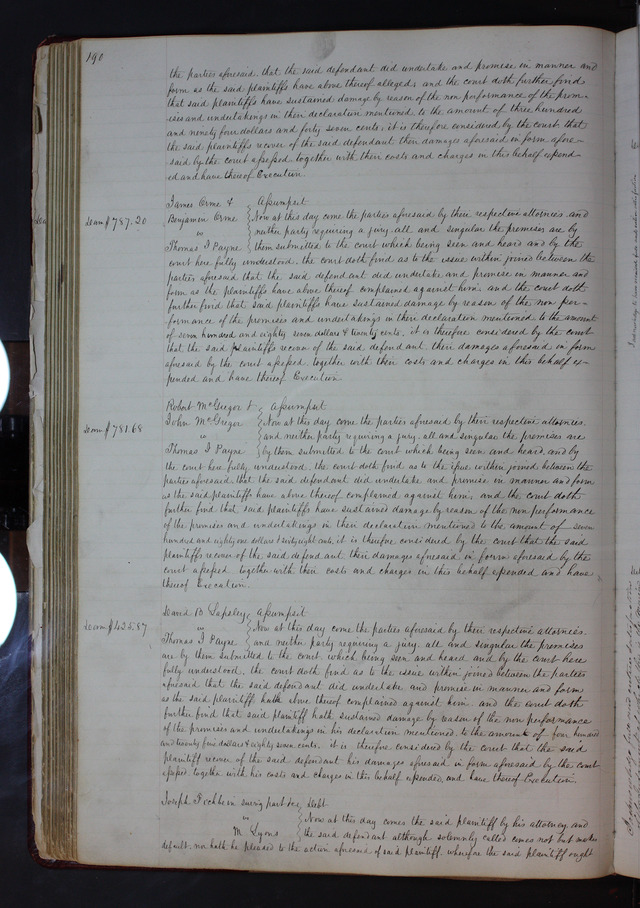 190
the parties aforesaid. that the said defendant did undertake and promise in manner and
form as the said plaintiffs have above thereof alleged; and the court doth further find
that said plaintiffs have sustained damage by reason of the non performance of the prom-
ises and undertakings in their declaration mentioned to the amount of three hundred
and ninety four dollars and forty seven cents, it is therefore considered by the court that
the said plaintiffs recover of the said defendant their damages aforesaid in form afore-
said by the court assessed together with their costs and charges in this behalf expend-
ed and have thereof Execution.
James Orme & Assumpsit
$787.20 Benjamin Orme Now at this day come the parties aforesaid by their respective attornies and
vs neither party requiring a jury all and singular the premises are by
Thomas I Payne them submitted to the court which being seen and heard and by the
court here fully understood. the court doth find as to the issue within joined between the
parties aforesaid that the said defendant did undertake and promise in manner and
form as the plaintiffs have above thereof complained against him. and the court doth
further find that said plaintiffs have sustained damage by reason of the non per-
formance of the promises and undertakings in their declaration mentioned to the amount
of seven hundred and eighty seven dollars & twenty cents, it is therefore considered by the court
that the said plaintiffs recover of the said defendant their damages aforesaid in form
aforesaid by the court assessed, together with their costs and charges in this behalf ex-
pended and have thereof Execution.
Robert McGregor & Assumpsit
$781.68 John McGregor Now at this day come the parties aforesaid by their respective attornies.
vs and neither party requiring a jury. all and singular the premises are
Thomas I Payne by them submitted to the court which being seen and heard, and by
the court here fully understood. the court doth find as to the issue within joined between the
parties aforesaid that the said defendant did undertake and promise in manner and form
as the said plaintiffs have above thereof complained against him, and the court doth
further find that said plaintiffs have sustained damage by reason of the non performance
of the promises and undertakings in their declaration mentioned to the amount of seven
hundred and eighty one dollars & sixty eight cents, it is therefore considered by the court that the said
plaintiffs recover of the said defendant their damages aforesaid in form aforesaid by the
court assessed together with their costs and charges in this behalf expended and have
thereof Execution.
David B Lapsley Assumpsit
$425.87 vs Now at this day come the parties aforesaid by their respective attornies.
Thomas I Payne and neither party requiring a jury. all and singular the premises
are by them submitted to the court which being seen and heard and by the court here
fully understood, the court doth find as to the issue within joined between the parties
aforesaid that the said defendant did undertake and promise in manner and form
as the said plaintiff hath above thereof complained against him and the court doth
further find that said plaintiff hath sustained damage by reason of the non performance
of the promises and undertakings in his declaration mentioned to the amount of four hundred
and twenty five dollars & eighty seven cents. it is therefore considered by the court that the said
plaintiff recover of the said defendant his damages aforesaid in form aforesaid by the court
assessed together with his costs and charges in this behalf expended, and have thereof Execution.
Joseph surving partner Debt
vs Now at this day comes the said plaintiff by his attorney and
M Lyons the said defendant although solemnly called comes not but makes
default. nor hath he pleaded to the action aforesaid of said plaintiff. wherefore the said plaintiff ought